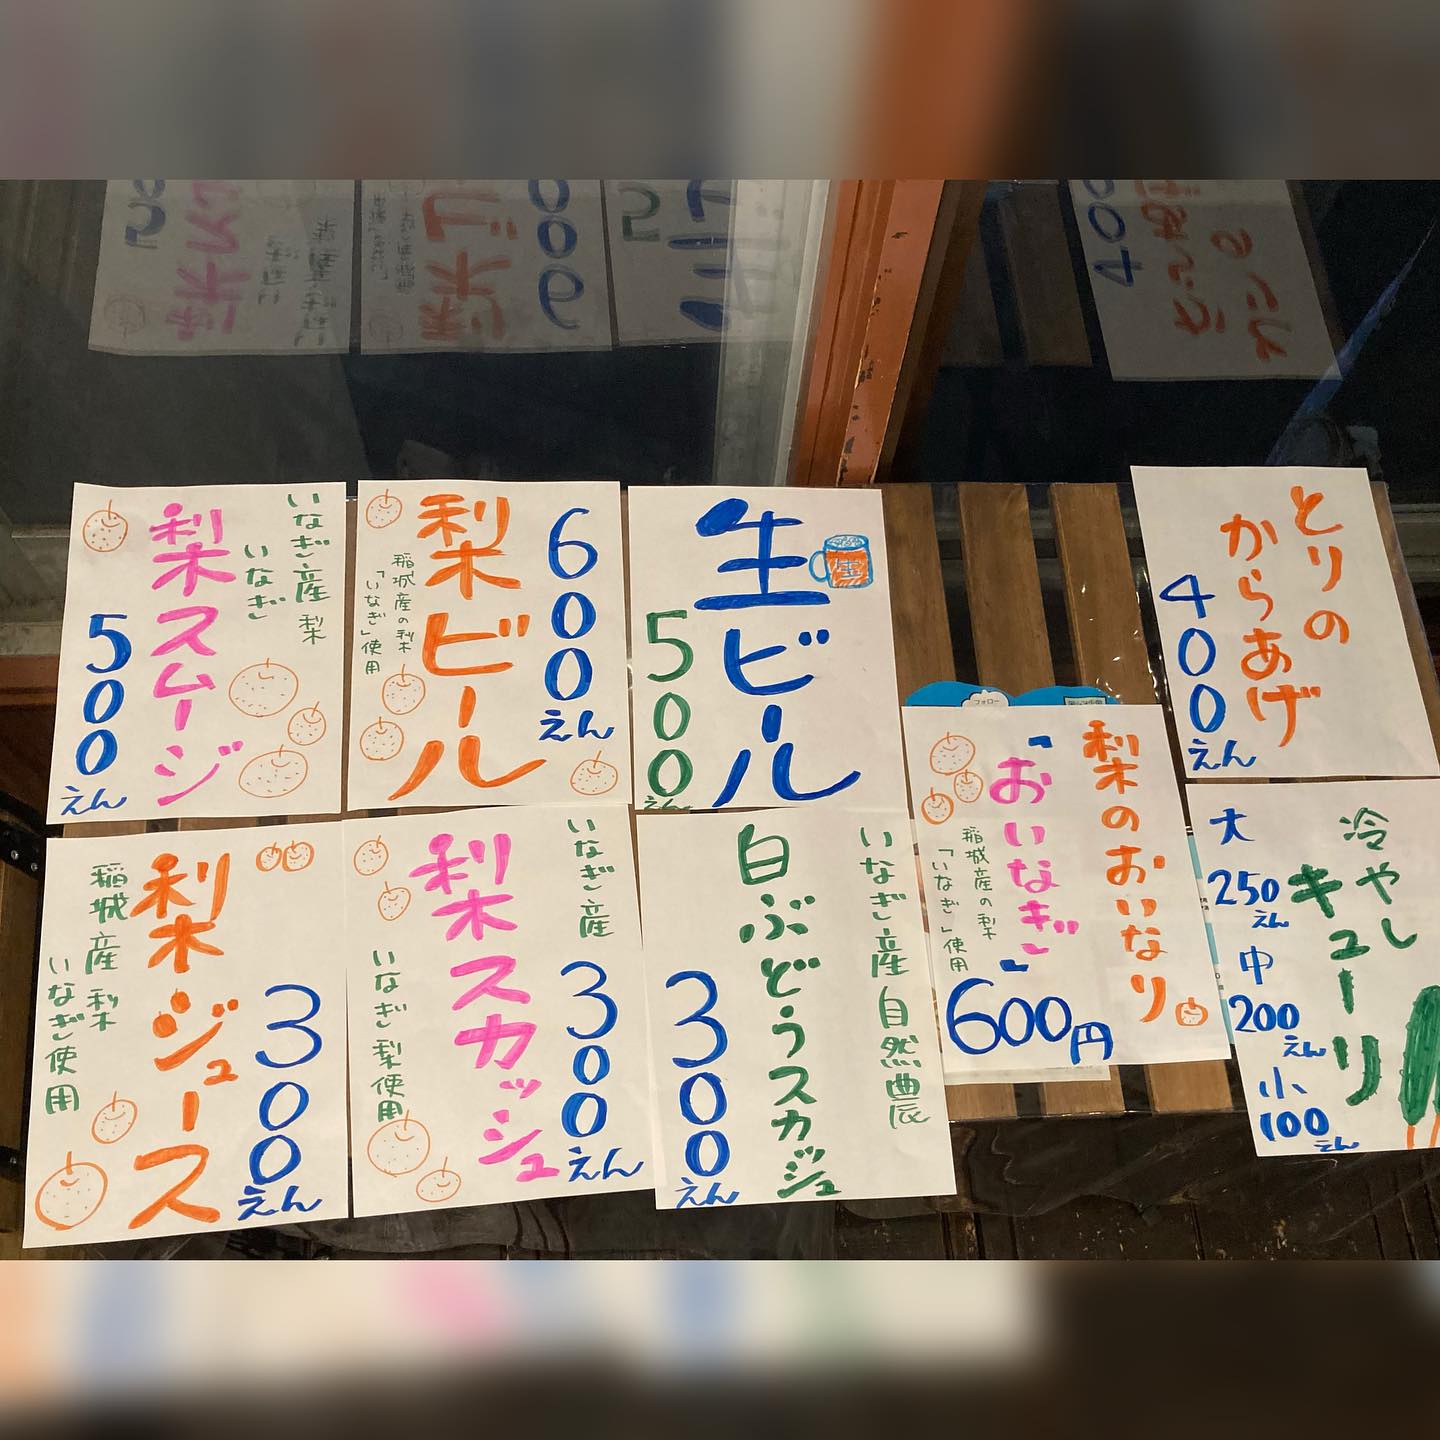 いなぎ産 梨
いなぎ
梨スムージ
500えん
600えん
梨ビール
稲城産の梨
「いなぎ」使用
生ビール
生
500えん
とりの
からあげ
400えん
梨のおいなり
「おいなぎ」
稲城産の梨
「いなぎ」使用
600円
フォロー
冷やし
キューリ
大
250えん
中
200えん
小
100えん
300えん
梨ジュース
稲城産 梨
いなぎ使用
いなぎ産
300えん
梨スカッシュ
いなぎ梨使用
いなぎ産 自然農
白ぶどうスカッシュ
300えん